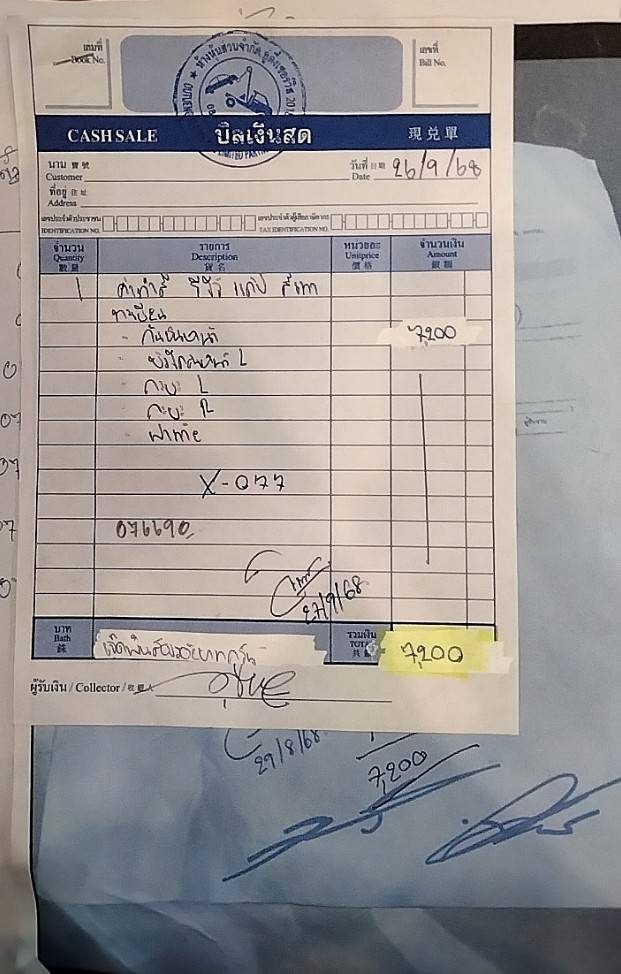 เล่มที่
Book No.
เลขที่
Bill No.
CASH SALE บิลเงินสด 現兌單
นาม 寶號
Customer
วันที่ 日期
Date 26/9/68
ที่อยู่ 住址
Address
เลขประจำตัวประชาชน
IDENTIFICATION NO.
เลขประจำตัวผู้เสียภาษีอากร
TAX IDENTIFICATION NO.
จำนวน รายการ หน่วยละ จำนวนเงิน
Quantity Description Unitprice Amount
數量 貨名 價格 銀額
1 ค่าทำสี
ทะเบียน
- กันชนหน้า 7,200
L
- กะบะ L
- กะบะ R
- ฝาท้าย
X-077
076690
27/9/68
บาท
Bath
銖
เจ็ดพันสองร้อยบาทถ้วน
รวมเงิน
TOTAL
7,200
ผู้รับเงิน / Collector / 收銀人
29/8/68
7,200